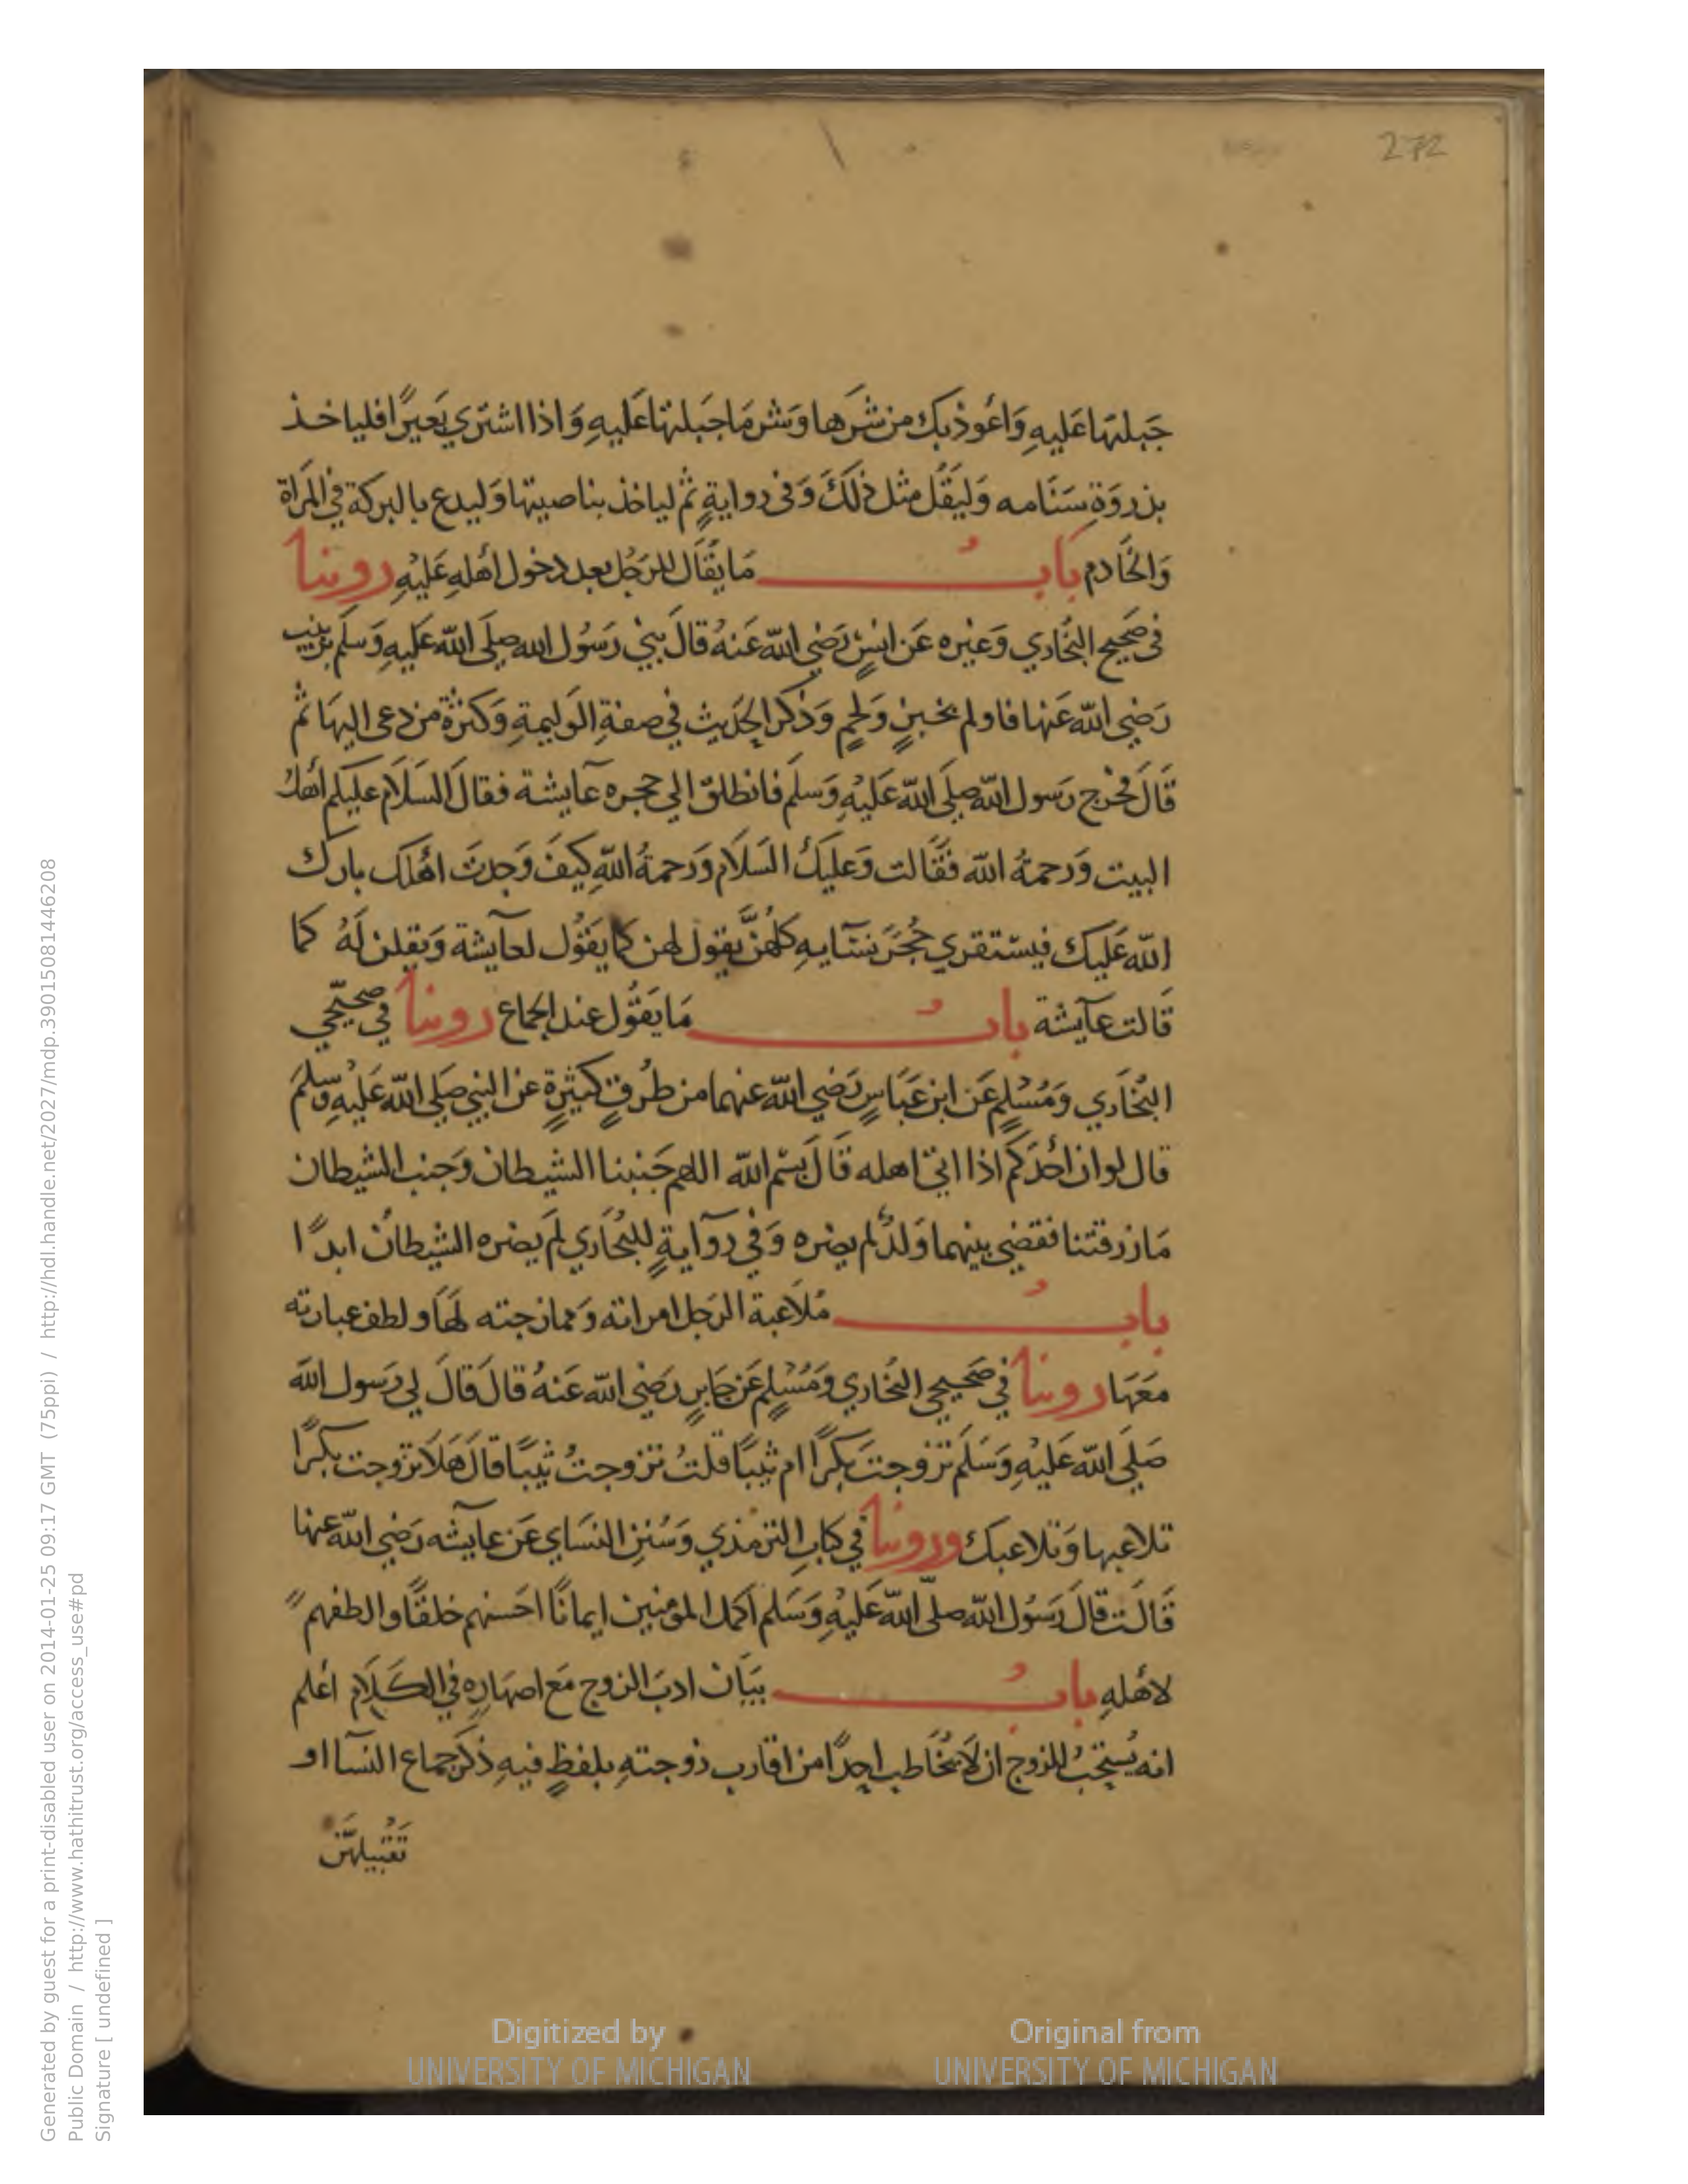 272
جَبلتَها عَليهِ وَاعُوذ بك من شَرّها وَشر مَا جَبلتها عَليهِ وَاذا اشتري بَعيرًا فلياخذ
بذروَةِ سَنَامه وَليَقُل مثل ذلكَ وَفى روايةٍ ثم لياخذ بناصيتها وَليدع بالبركة في المَراة
وَالخَادم بَابُ مَا يقَال للرَجُل بعد دخول أهلهِ عَليْهِ روينا
فى صَحيح البُخَاري وَغيره عَن انسٍ رَضي الله عَنهُ قالَ بني رَسُول الله صلَى الله عَليهِ وَسلَم بزينب
رَضي الله عَنها فاولم بخبزٍ وَلحمٍ وَذكر الحَديث في صفةِ الوَليمةِ وَكثرة من دعى اليهَا ثم
قَالَ فخرج رَسول الله صلَى الله عَليْهِ وَسلَم فانطلق الي حجره عآيشة فقال السَلَام عليكم أهل
البيت وَرَحمةُ الله فقَالت وَعليكَ السَلَام وَرَحمةُ اللهِ كيفَ وَجدتَ اهلك بارك
الله عَليك فيستقري حُجَرَ نسَآيهِ كلهُنَّ يقول لهن كما يقَوُل لعآيشة وَيقلن لَهُ كما
قَالت عآيشة بابُ مَا يَقُول عند الجماع روينا في صحيحَي
البُخَاري وَمُسْلمٍ عَن ابن عَبَاسٍ رَضي الله عنهما من طرُقٍ كثيرةٍ عن النبي صَلي الله عَليْهِ وَسلمَ
قال لوان احَدَكم اذا اتى اهله قَالَ بسْم الله اللهم جَنبنا الشيطان وَجنب الشيطان
مَا رزقتنا فقضي بينهما وَلدٌ لم يضره وَفي روَايةٍ للبُخاري لمَ يضره الشيطانُ ابدًا
بابُ مُلَاعبة الرَجل امراته وَممازجته لهَا ولطف عبارته
معَهَا روينا في صَحيحي البُخاري وَمُسْلمٍ عَن جَابرٍ رَضي الله عَنهُ قالَ قالَ لي رَسول الله
صَلَي الله عَليْهِ وَسَلَم تزوجتَ بكرًا ام ثيبًا قلتُ تزوجتُ ثيبًا قالَ هَلَا تزوجت بكرًا
تلاعبها وَتلاعبك وروينا في كتابِ الترمذي وَسُننِ النسَاي عَن عآيشه رَضي الله عنها
قَالَت قالَ رَسُول الله صلّى الله عَليْهِ وَسَلم اكمل المومنين ايمانًا احَسنهم خلقًا والطفهم
لأهلهِ بابُ بيَان ادبَ الزوج مَع اصهَارهِ في الكَلَام اعلم
انه يُستحَبُ للزوج ان لَا يُخَاطب احدًا من اقارب زوجتهِ بلفظٍ فيهِ ذكر جماع النسآ او
تقبيلهَن
Generated by guest for a print-disabled user on 2014-01-25 09:17 GMT (75ppi) / http://hdl.handle.net/2027/mdp.39015081446208
Public Domain / http://www.hathitrust.org/access_use#pd
Signature [ undefined ]
Digitized by UNIVERSITY OF MICHIGAN
Original from UNIVERSITY OF MICHIGAN